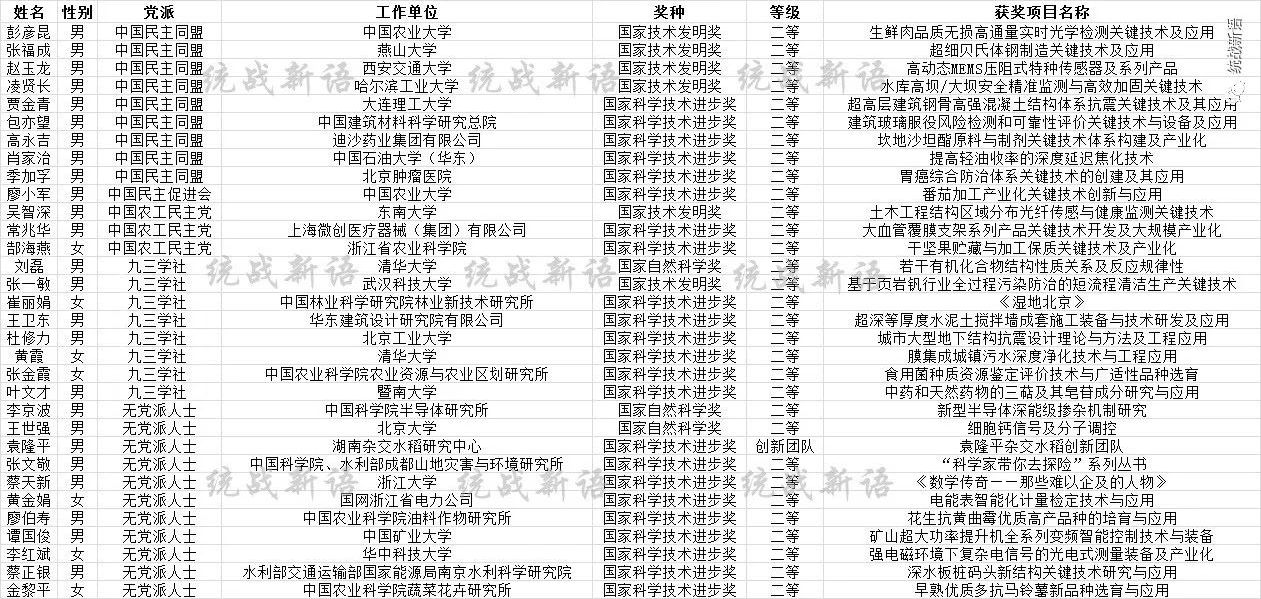 姓名 性别 党派 工作单位 奖种 等级 获奖项目名称
彭彦昆 男 中国民主同盟 中国农业大学 国家技术发明奖 二等 生鲜肉品质无损高通量实时光学检测关键技术及应用
张福成 男 中国民主同盟 燕山大学 国家技术发明奖 二等 超细贝氏体钢制造关键技术及应用
赵玉龙 男 中国民主同盟 西安交通大学 国家技术发明奖 二等 高动态MEMS压阻式特种传感器及系列产品
凌贤长 男 中国民主同盟 哈尔滨工业大学 国家技术发明奖 二等 水库高坝/大坝安全精准监测与高效加固关键技术
贾金青 男 中国民主同盟 大连理工大学 国家科学技术进步奖 二等 超高层建筑钢骨高强混凝土结构体系抗震关键技术及其应用
包亦望 男 中国民主同盟 中国建筑材料科学研究总院 国家科学技术进步奖 二等 建筑玻璃服役风险检测和可靠性评价关键技术与设备及应用
高永吉 男 中国民主同盟 迪沙药业集团有限公司 国家科学技术进步奖 二等 坎地沙坦酯原料与制剂关键技术体系构建及产业化
肖家治 男 中国民主同盟 中国石油大学（华东） 国家科学技术进步奖 二等 提高轻油收率的深度延迟焦化技术
季加孚 男 中国民主同盟 北京肿瘤医院 国家科学技术进步奖 二等 胃癌综合防治体系关键技术的创建及其应用
廖小军 男 中国民主促进会 中国农业大学 国家科学技术进步奖 二等 番茄加工产业化关键技术创新与应用
吴智深 男 中国农工民主党 东南大学 国家技术发明奖 二等 土木工程结构区域分布光纤传感与健康监测关键技术
常兆华 男 中国农工民主党 上海微创医疗器械（集团）有限公司 国家科学技术进步奖 二等 大血管覆膜支架系列产品关键技术开发及大规模产业化
郜海燕 女 中国农工民主党 浙江省农业科学院 国家科学技术进步奖 二等 干坚果贮藏与加工保质关键技术及产业化
刘磊 男 九三学社 清华大学 国家自然科学奖 二等 若干有机化合物结构性质关系及反应规律性
张一敏 男 九三学社 武汉科技大学 国家技术发明奖 二等 基于页岩钒行业全过程污染防治的短流程清洁生产关键技术
崔丽娟 女 九三学社 中国林业科学研究院林业新技术研究所 国家科学技术进步奖 二等 《湿地北京》
王卫东 男 九三学社 华东建筑设计研究院有限公司 国家科学技术进步奖 二等 超深等厚度水泥土搅拌墙成套施工装备与技术研发及应用
杜修力 男 九三学社 北京工业大学 国家科学技术进步奖 二等 城市大型地下结构抗震设计理论与方法及工程应用
黄霞 女 九三学社 清华大学 国家科学技术进步奖 二等 膜集成城镇污水深度净化技术与工程应用
张金霞 女 九三学社 中国农业科学院农业资源与农业区划研究所 国家科学技术进步奖 二等 食用菌种质资源鉴定评价技术与广适性品种选育
叶文才 男 九三学社 暨南大学 国家科学技术进步奖 二等 中药和天然药物的三萜及其皂苷成分研究与应用
李京波 男 无党派人士 中国科学院半导体研究所 国家自然科学奖 二等 新型半导体深能级掺杂机制研究
王世强 男 无党派人士 北京大学 国家自然科学奖 二等 细胞钙信号及分子调控
袁隆平 男 无党派人士 湖南杂交水稻研究中心 国家科学技术进步奖 创新团队 袁隆平杂交水稻创新团队
张文敬 男 无党派人士 中国科学院、水利部成都山地灾害与环境研究所 国家科学技术进步奖 二等 “科学家带你去探险”系列丛书
蔡天新 男 无党派人士 浙江大学 国家科学技术进步奖 二等 《数学传奇——那些难以企及的人物》
黄金娟 女 无党派人士 国网浙江省电力公司 国家科学技术进步奖 二等 电能表智能化计量检定技术与应用
廖伯寿 男 无党派人士 中国农业科学院油料作物研究所 国家科学技术进步奖 二等 花生抗黄曲霉优质高产品种的培育与应用
谭国俊 男 无党派人士 中国矿业大学 国家科学技术进步奖 二等 矿山超大功率提升机全系列变频智能控制技术与装备
李红斌 女 无党派人士 华中科技大学 国家科学技术进步奖 二等 强电磁环境下复杂电信号的光电式测量装备及产业化
蔡正银 男 无党派人士 水利部交通运输部国家能源局南京水利科学研究院 国家科学技术进步奖 二等 深水板桩码头新结构关键技术研究与应用
金黎平 女 无党派人士 中国农业科学院蔬菜花卉研究所 国家科学技术进步奖 二等 早熟优质多抗马铃薯新品种选育与应用
统战新语
统战新语 统战新语 统战新语
统战新语 统战新语 统战新语
统战新语 统战新语 统战新语